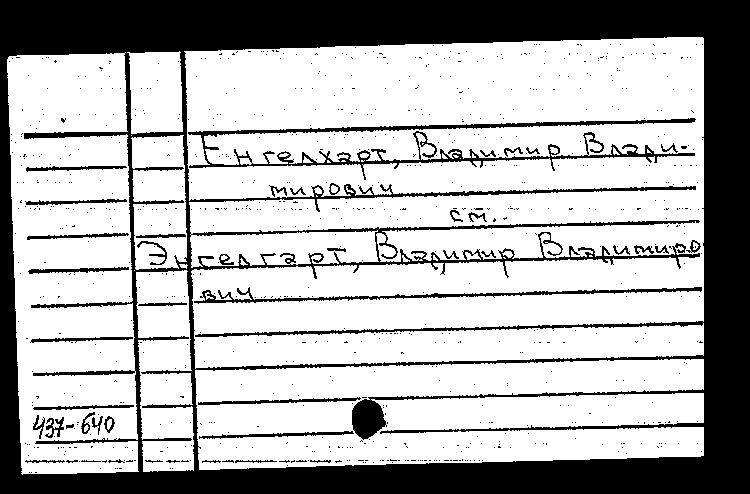 Енгелхарт, Владимир Влади-
мирович
ст.
Энгелгарт, Владимир Владимиро
вич
437-640